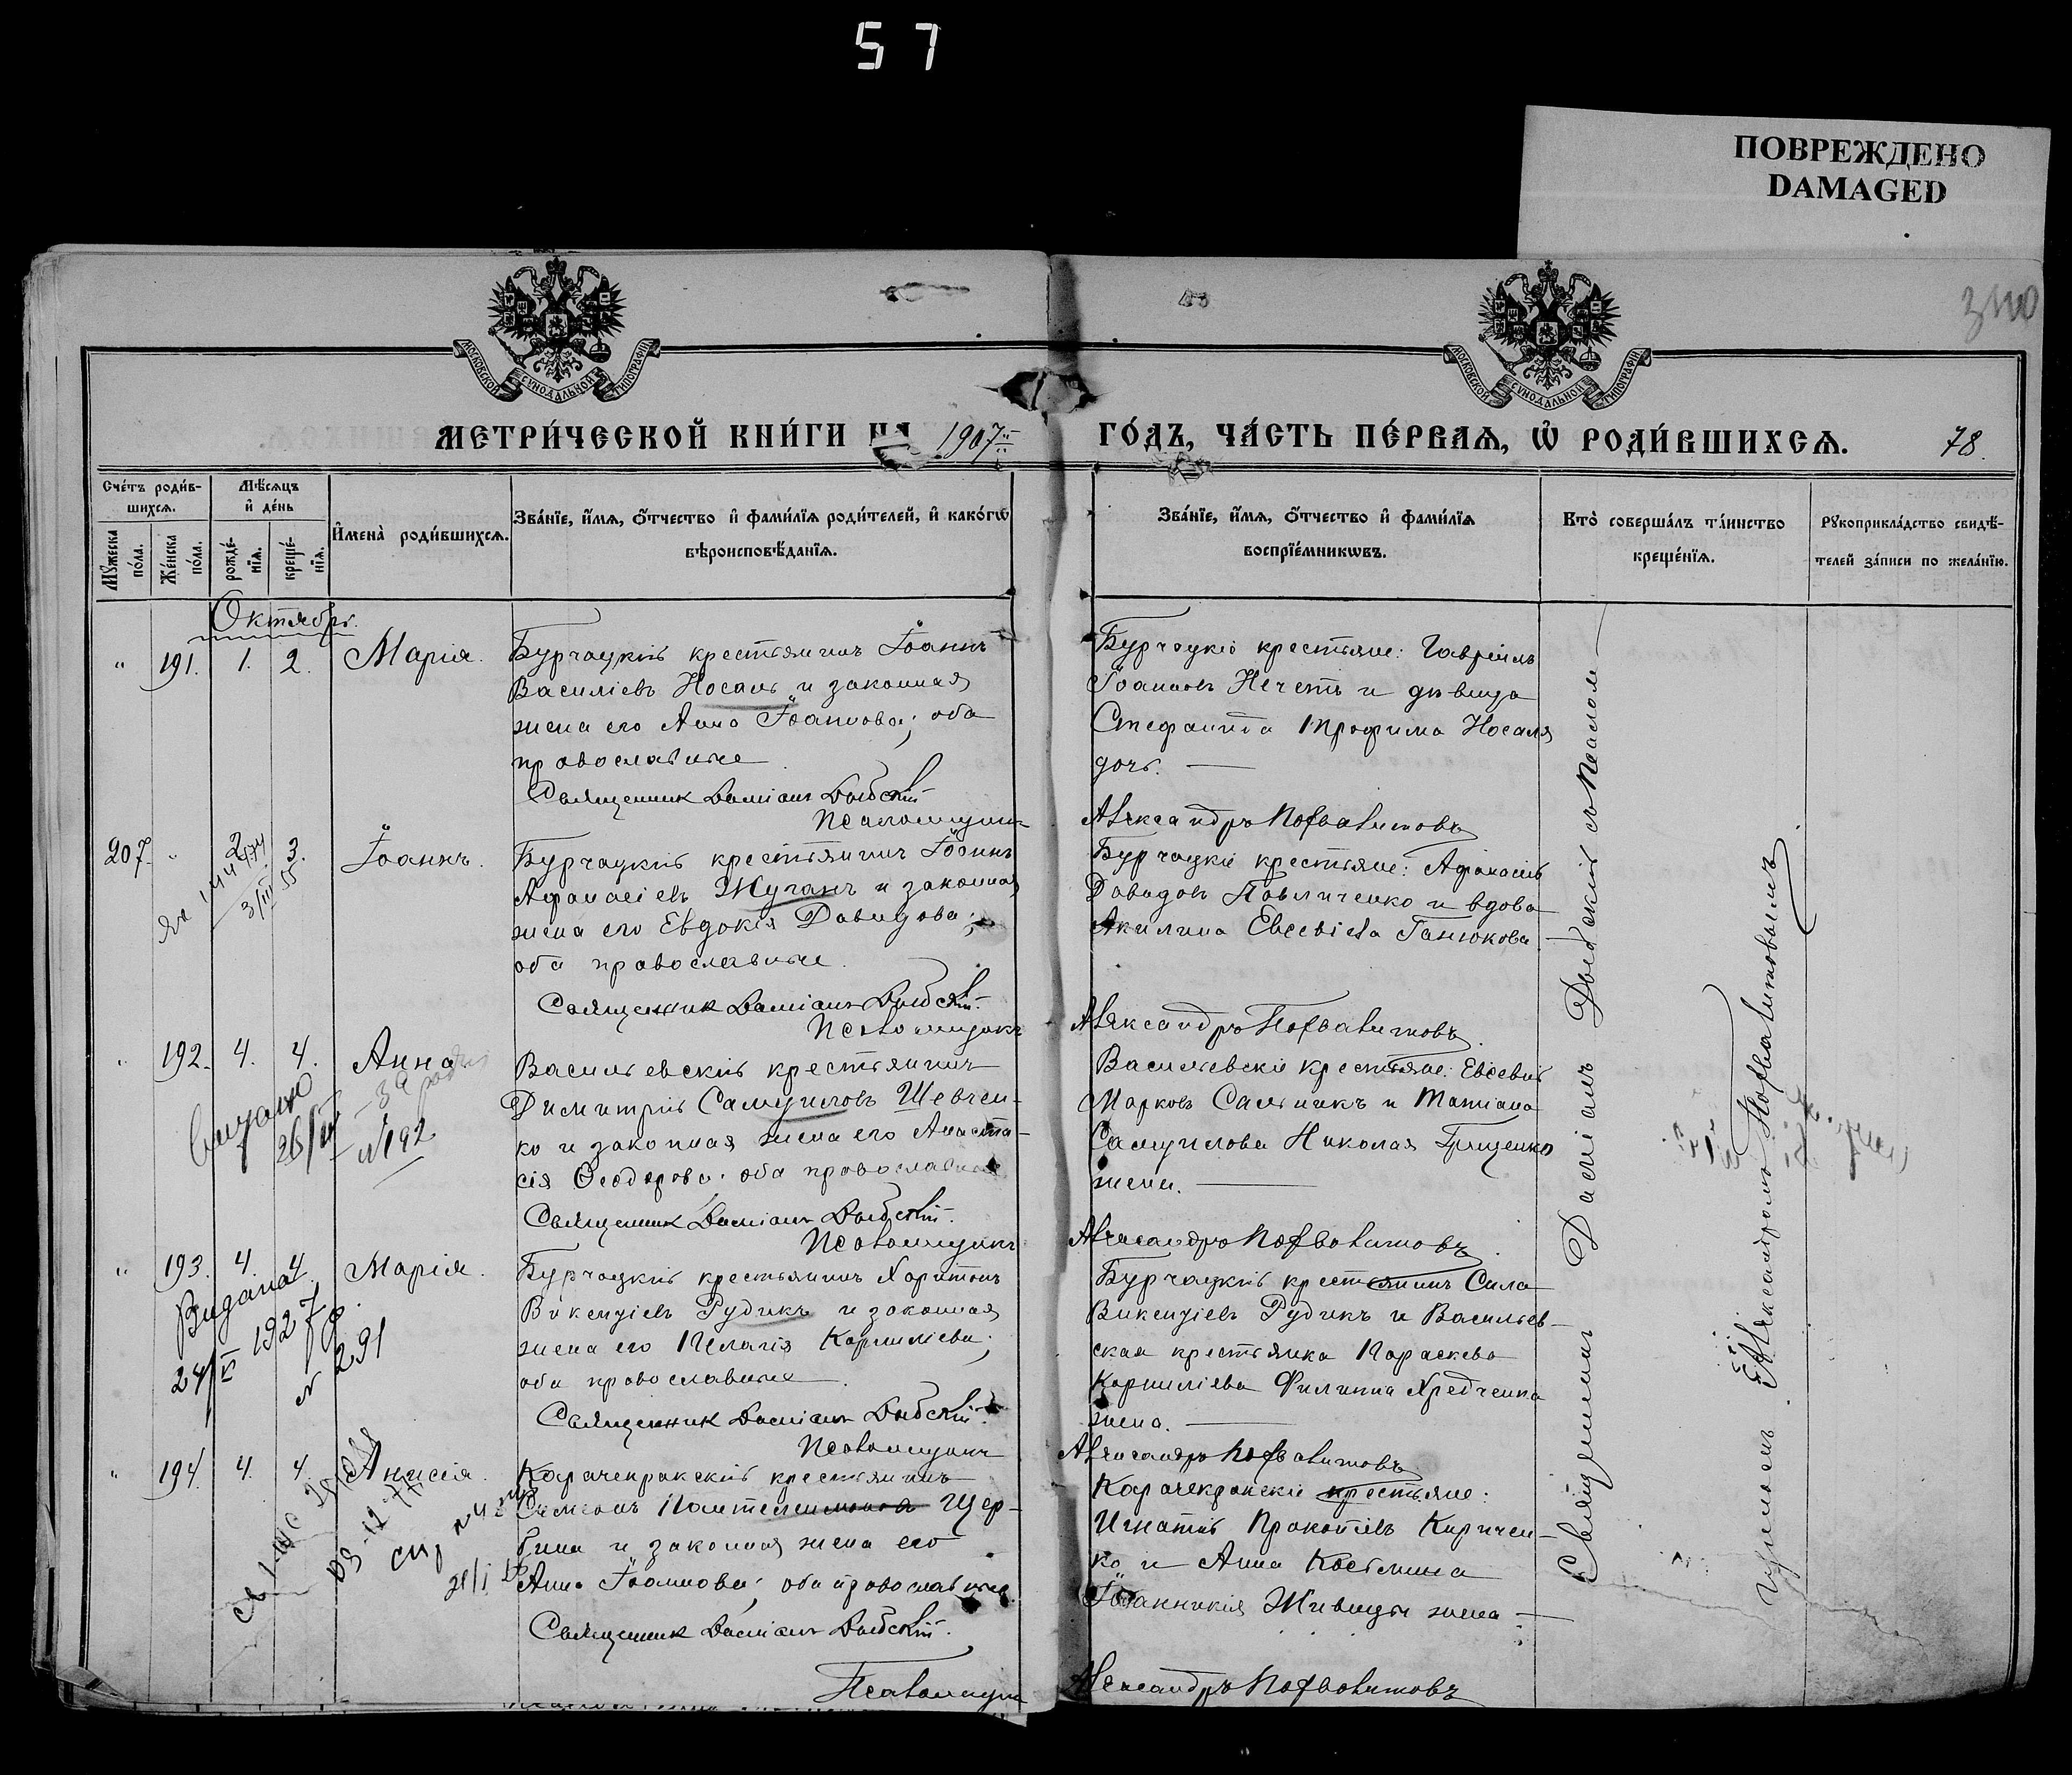 57
ПОВРЕЖДЕНО
DAMAGED
МОСКОВСКОЙ СѴНОДАЛЬНОЙ ТИПОГРАФІИ
МОСКОВСКОЙ СѴНОДАЛЬНОЙ ТИПОГРАФІИ
МЕТРИ́ЧЕСКОЙ КНИ́ГИ НА 1907 ГО́ДЪ, ЧА́СТЬ ПЕ́РВАЯ, Ѡ РОДИ́ВШИХСЯ. 78.
Сче́тъ роди́вшихся.
Му́жеска по́ла.
Же́нска по́ла.
Мѣ́сяцъ и де́нь
рожде́нїя.
креще́нїя.
Имена̀ роди́вшихся.
Зва́нїе, и́мя, о́тчество и фами́лїя роди́телей, и како́гѡ
вѣроисповѣ́данїя.
Зва́нїе, и́мя, о́тчество и фами́лїя
воспрїе́мникѡвъ.
Кто̀ соверша́лъ та́инство
креще́нїя.
Рꙋкоприкла́дство свидѣ́-
телей за́писи по жела́нїю.
Октябрь.
" 191. 1. 2. Марія.
Бурчацкій крестьянинъ Іоаннъ
Василіевъ Носаль и законная
жена его Анна Іоаннова; оба
православные
Священникъ Даміанъ Дыбскій
Псаломщикъ
Бурчацкіе крестьяне: Гавріилъ
Іоанновъ Нечетъ и дѣвица
Стефанида Трофима Носаля
дочь.
Александръ Похвалитовъ
207. " 2. 3. Іоаннъ.
3/III 55
Бурчацкій крестьянинъ Іоаннъ
Афанасіевъ Жуганъ и законная
жена его Евдокія Давидова;
оба православные.
Священникъ Даміанъ Дыбскій
Псаломщикъ
Бурчацкіе крестьяне: Афанасій
Давидовъ Павличенко и вдова
Акилина Евсевіева Ганюкова
Александръ Похвалитовъ
" 192. 4. 4. Анна
26/IV
№192
Васильевскій крестьянинъ
Димитрій Самуиловъ Шевчен-
ко и законная жена его Анаста-
сія Ѳеодорова; оба православные
Священникъ Даміанъ Дыбскій.
Псаломщикъ
Васильевскіе крестьяне: Евсевій
Марковъ Сальникъ и Татіана
Самуилова Николая Грищенко
жена.
Александръ Похвалитовъ
" 193. 4. 4. Марія.
Видана
24/VI 1927 р.
№ 291
Бурчацкій крестьянинъ Харитонъ
Викентіевъ Рудикъ и законная
жена его Пелагія Корниліева;
оба православные.
Священникъ Даміанъ Дыбскій.
Псаломщикъ
Бурчацкій крестьянинъ Сила
Викентіевъ Рудикъ и Васильев-
ская крестьянка Параскева
Корниліева Филиппа Хредченка
жена.
Александръ Похвалитовъ
" 194. 4. 4. Анисія.
Карачекракскій крестьянинъ
Симеонъ Пантелеимонов Щер-
бина и законная жена его
Анна Іоаннова; оба православные
Священникъ Даміанъ Дыбскій.
Псаломщикъ
Карачекракскіе крестьяне:
Игнатій Прокопіевъ Киричен-
ко и Анна Косьмина
Іоанникія Живицы жена
Александръ Похвалитовъ
Священникъ Даміанъ Дыбскій съ Псалом-
щикомъ Александромъ Похвалитовымъ